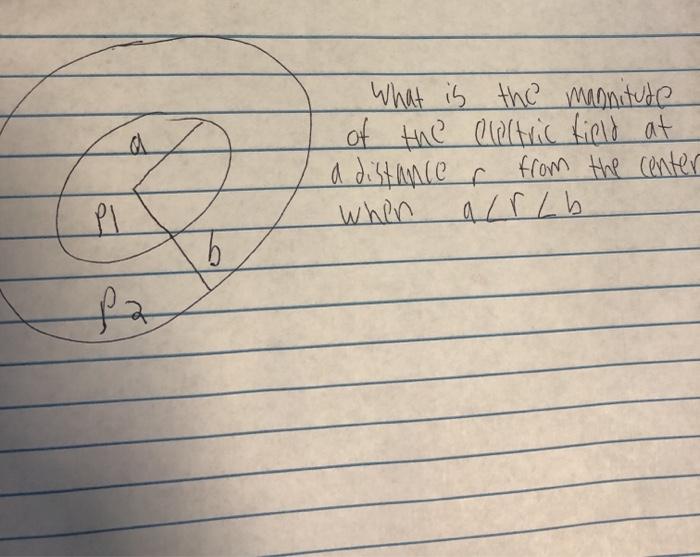 What is the magnitude
of the electric field at
a distance r from the center
when a<r<b
a
ρ1
b
ρ2